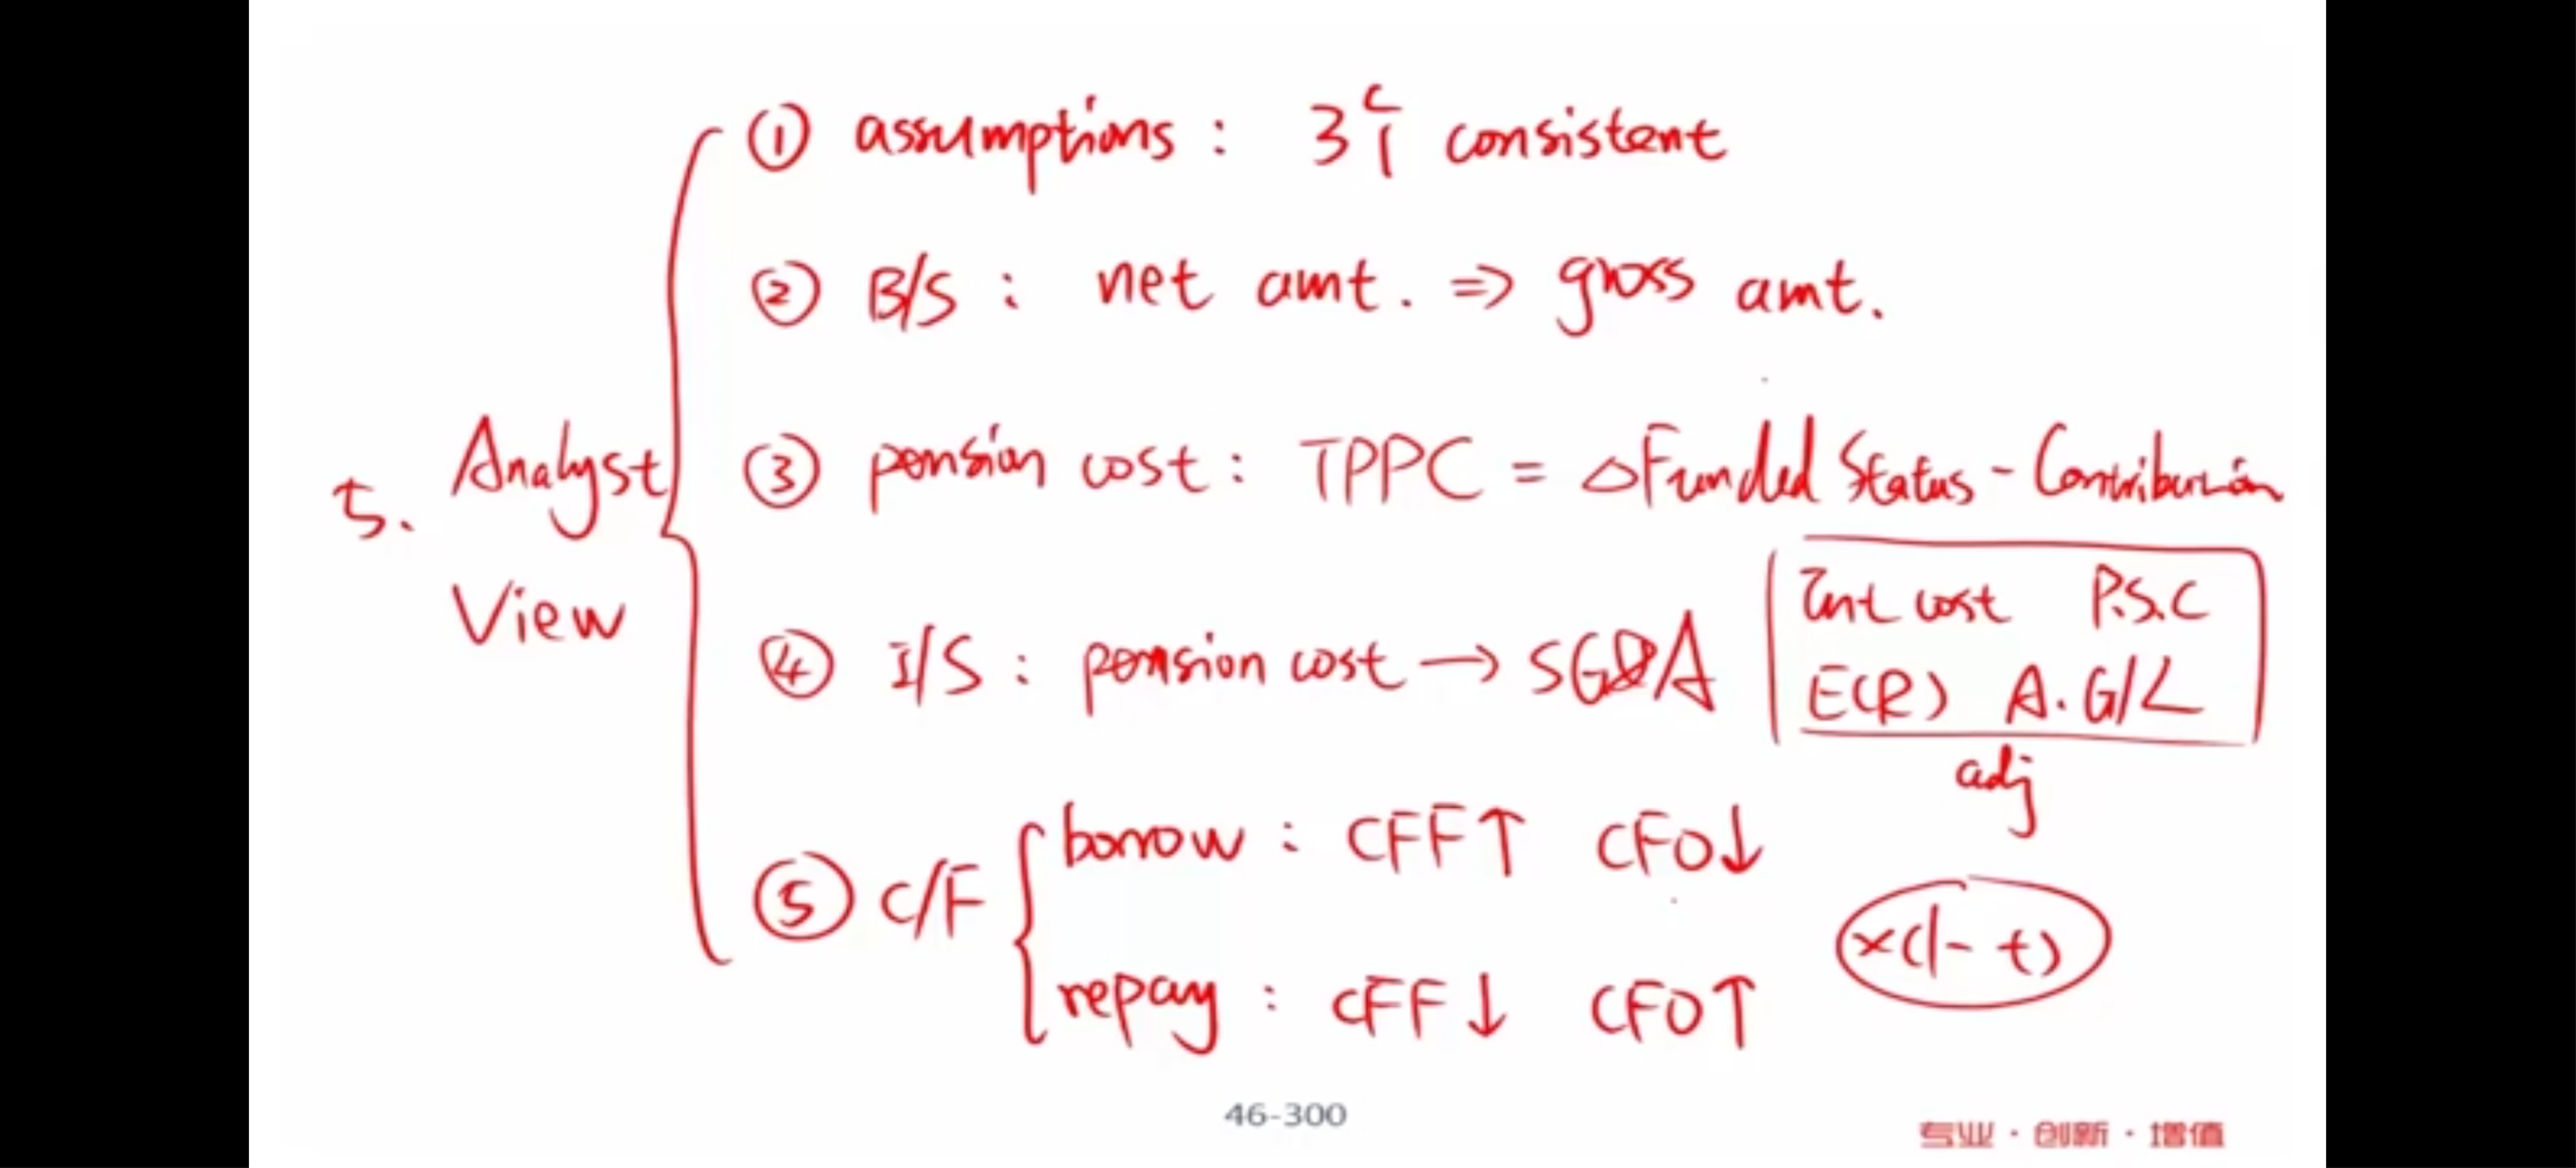 5. Analyst View
① assumptions : 3个 consistent
② B/S : net amt. ⇒ gross amt.
③ pension cost : TPPC = △Funded Status - Contribution
④ I/S : pension cost → SG&A
Int cost P.S.C
E(R) A. G/L
adj
⑤ C/F
borrow : CFF↑ CFO↓
repay : CFF↓ CFO↑
×(1-t)
46-300
专业·创新·增值